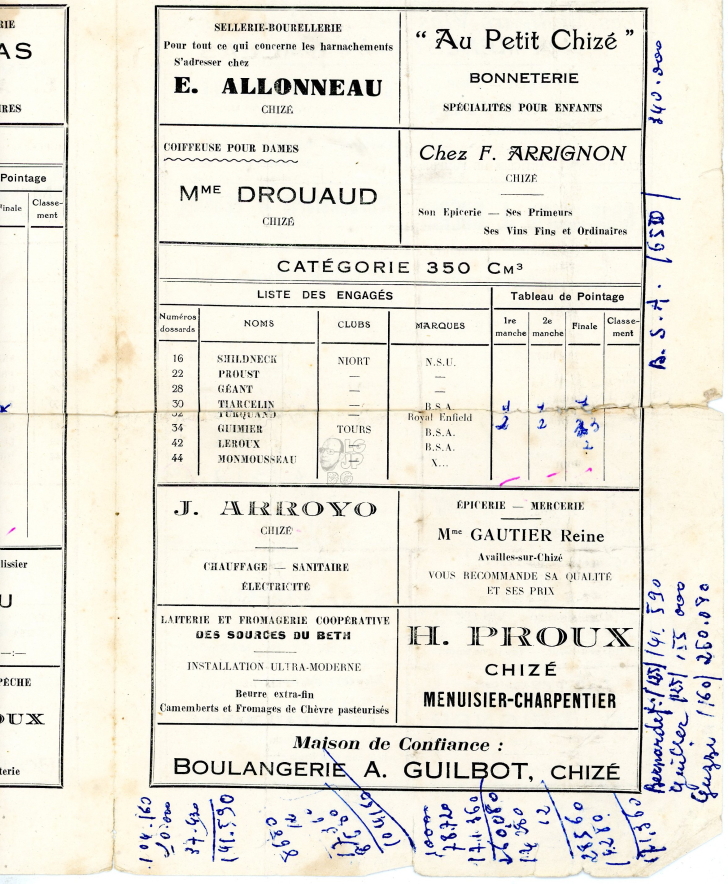 RIE
AS
RES
Pointage
Finale
Classe-
ment
SELLERIE-BOURELLERIE
Pour tout ce qui concerne les harnachements
S'adresser chez
E. ALLONNEAU
CHIZÉ
“ Au Petit Chizé ”
BONNETERIE
SPÉCIALITÉS POUR ENFANTS
COIFFEUSE POUR DAMES
Mme DROUAUD
CHIZÉ
Chez F. ARRIGNON
CHIZÉ
Son Epicerie — Ses Primeurs
Ses Vins Fins et Ordinaires
CATÉGORIE 350 Cm³
LISTE DES ENGAGÉS Tableau de Pointage
Numéros dossards NOMS CLUBS MARQUES 1re manche 2e manche Finale Classe-ment
16 SHILDNECK NIORT N.S.U.
22 PROUST — —
28 GÉANT — —
30 TIARCELIN — B.S.A. 1 1 1
32 TURQUAND Royal Enfield
34 GUIMIER TOURS B.S.A. 2 2 3
42 LEROUX — B.S.A. 2
44 MONMOUSSEAU — X...
J. ARROYO
CHIZÉ
CHAUFFAGE — SANITAIRE
ÉLECTRICITÉ
ÉPICERIE — MERCERIE
Mme GAUTIER Reine
Availles-sur-Chizé
VOUS RECOMMANDE SA QUALITÉ
ET SES PRIX
LAITERIE ET FROMAGERIE COOPÉRATIVE
DES SOURCES DU BETH
INSTALLATION ULTRA-MODERNE
Beurre extra-fin
Camemberts et Fromages de Chèvre pasteurisés
H. PROUX
CHIZÉ
MENUISIER-CHARPENTIER
Maison de Confiance :
BOULANGERIE A. GUILBOT, CHIZÉ
lissier
U
PÊCHE
OUX
terie
B.S.A. 340.000
Bernardet (125) 141.590
(125) 155 000
Guzzi (160) 260.090
104.160
37.430
141.590
78.720
171.360
12
28560
171.360